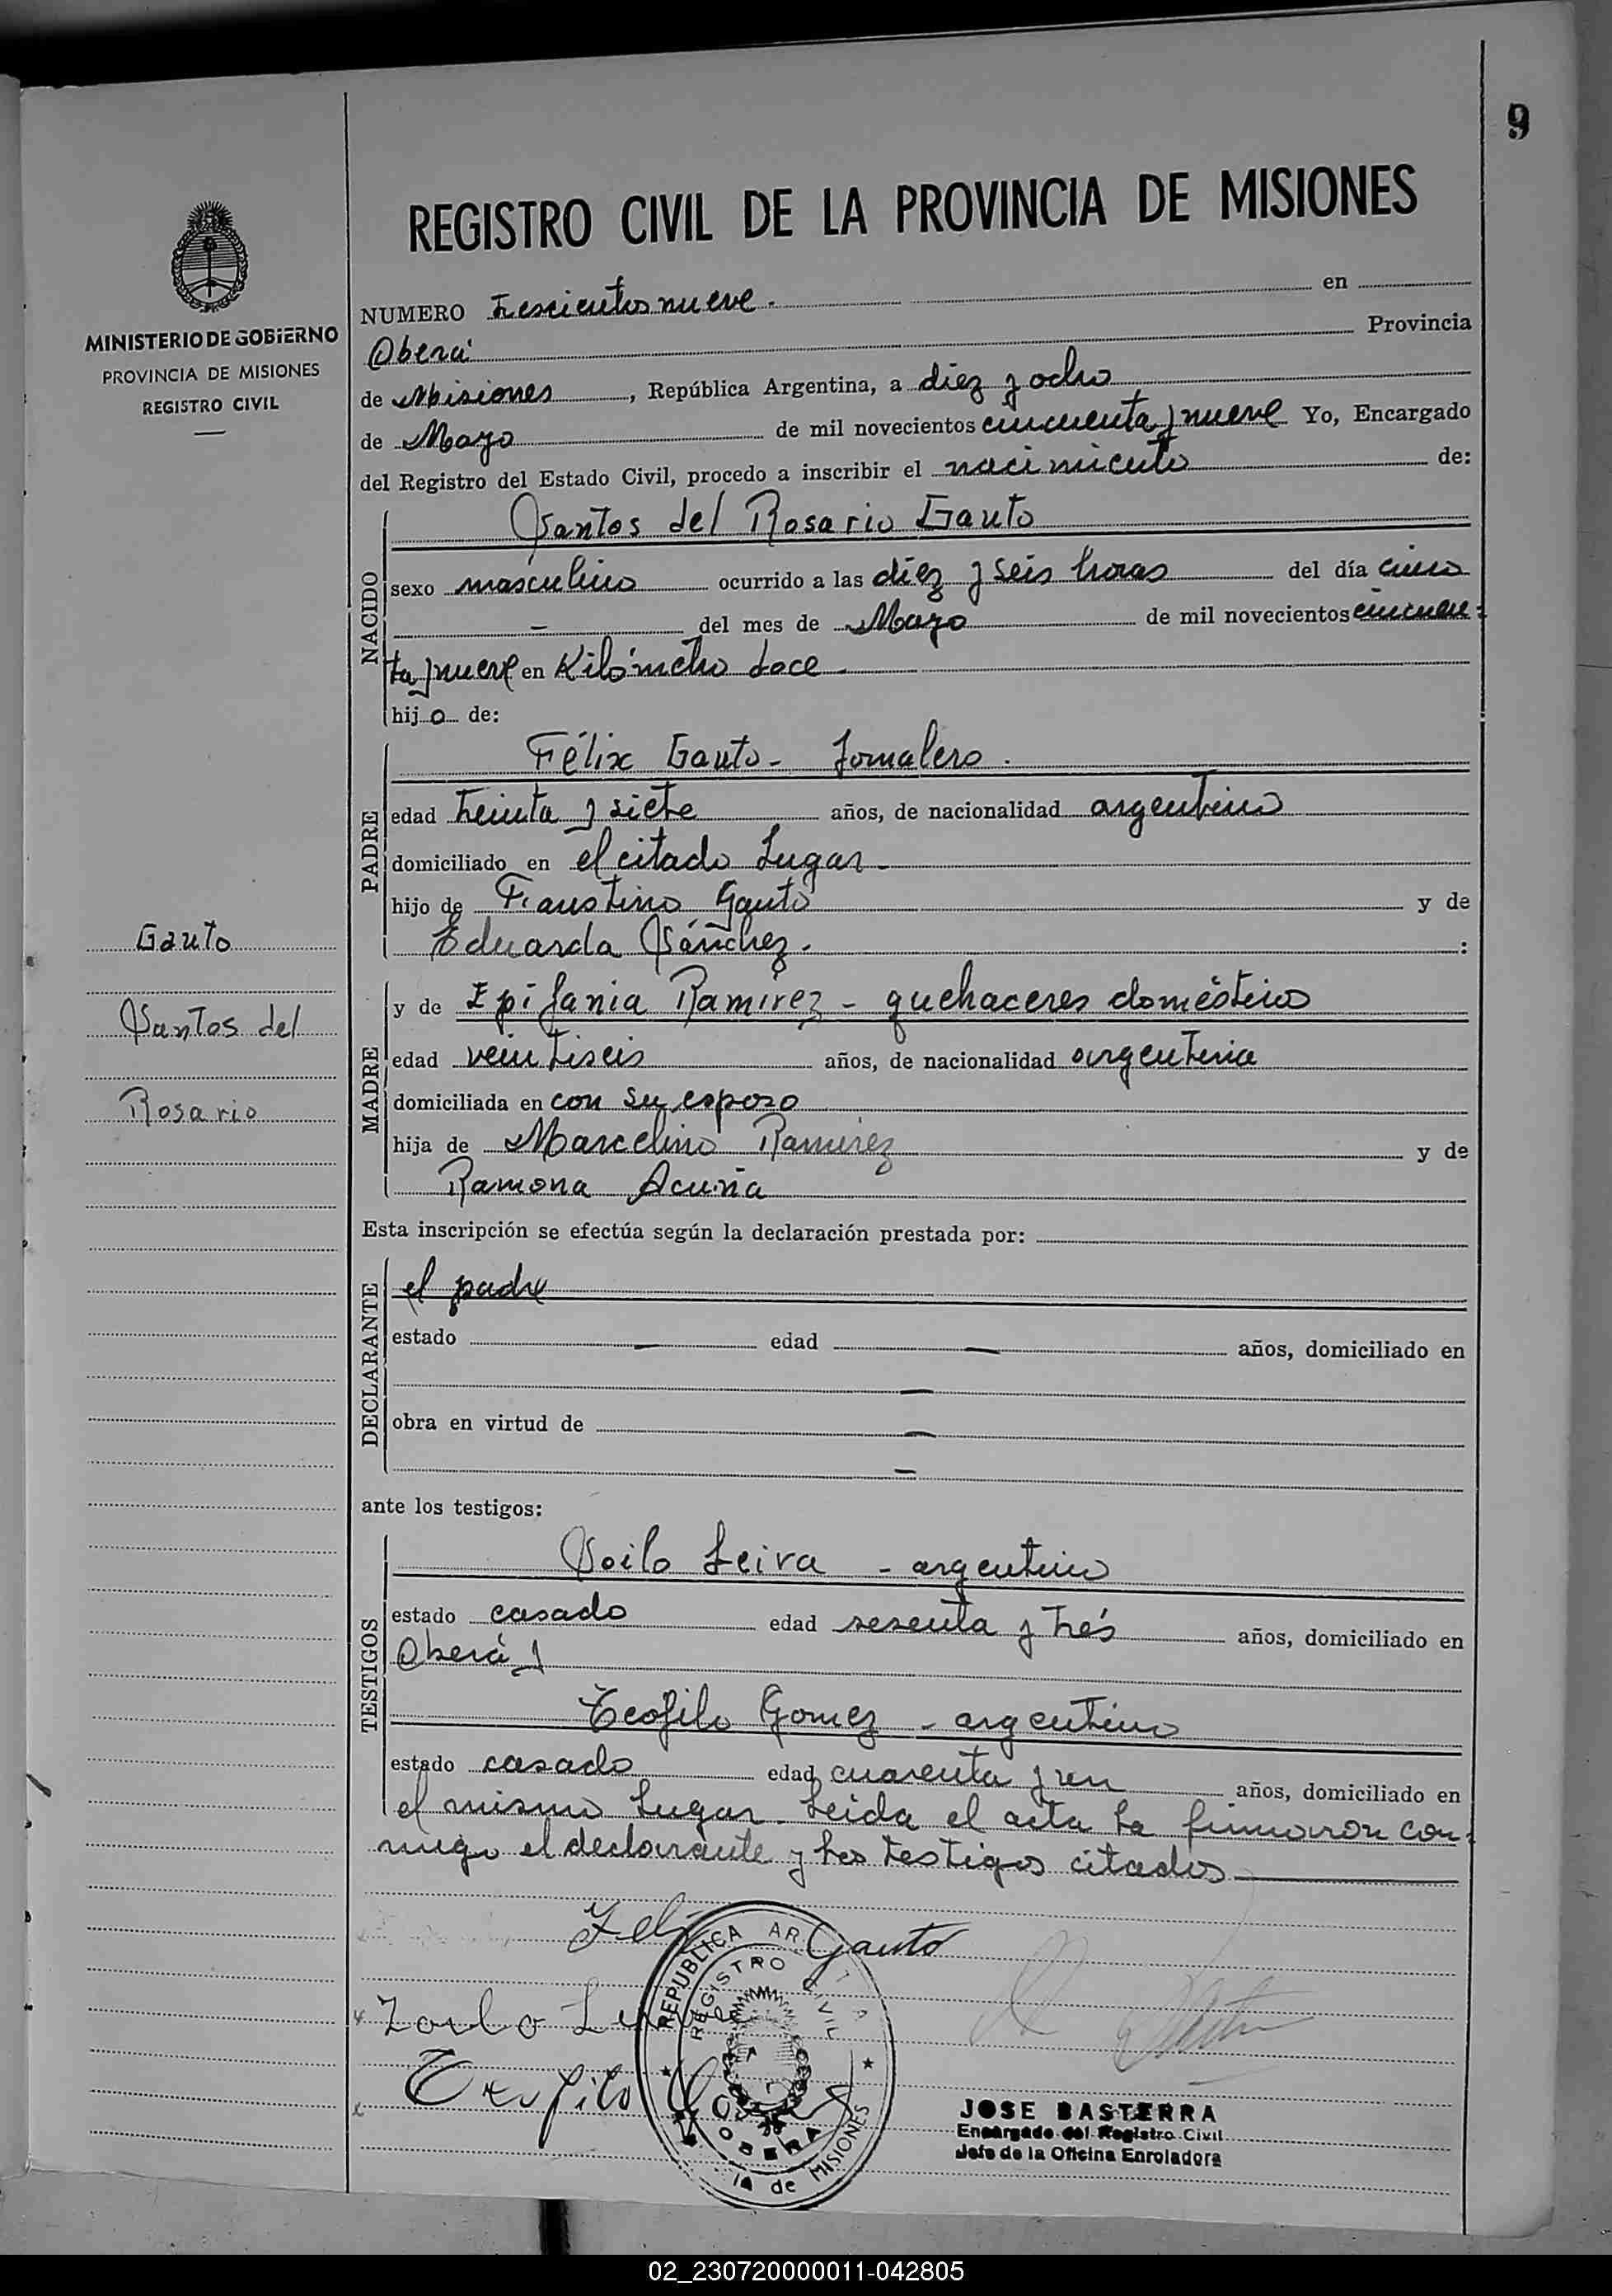 9
REGISTRO CIVIL DE LA PROVINCIA DE MISIONES
MINISTERIO DE GOBIERNO
PROVINCIA DE MISIONES
REGISTRO CIVIL
NUMERO trescientos nueve. en
Oberá Provincia
de Misiones, República Argentina, a diez y ocho
de Mayo de mil novecientos cincuenta y nueve Yo, Encargado
del Registro del Estado Civil, procedo a inscribir el nacimiento de:
NACIDO
Santos del Rosario Gauto
sexo masculino ocurrido a las diez y seis horas del día cinco
- del mes de Mayo de mil novecientos cincuen-
ta y nueve en Kilómetro doce
hijo de:
PADRE
Félix Gauto - Jornalero.
edad treinta y siete años, de nacionalidad argentino
domiciliado en el citado lugar -
hijo de Faustino Gauto y de
Eduarda Sánchez. :
MADRE
y de Epifania Ramírez - quehaceres doméstico
edad veintiseis años, de nacionalidad argentina
domiciliada en con su esposo
hija de Marcelino Ramirez y de
Ramona Acuña
Gauto
Santos del
Rosario
Esta inscripción se efectúa según la declaración prestada por:
DECLARANTE
el padre
estado — edad — años, domiciliado en
—
obra en virtud de —
—
ante los testigos:
TESTIGOS
Soilo Leiva - argentino
estado casado edad sesenta y trés años, domiciliado en
Oberá y
Teofilo Gomez - argentino
estado casado edad cuarenta y un años, domiciliado en
el mismo lugar. Leida el acta la firmaron con-
migo el declarante y los testigos citados
Gauto
Zoilo
Teofilo
REPUBLICA AR T A
REGISTRO CIVIL
OBERA
ia de MISIONES
JOSE BASTERRA
Encargado del Registro Civil
Jefe de la Oficina Enroladora
02_230720000011-042805